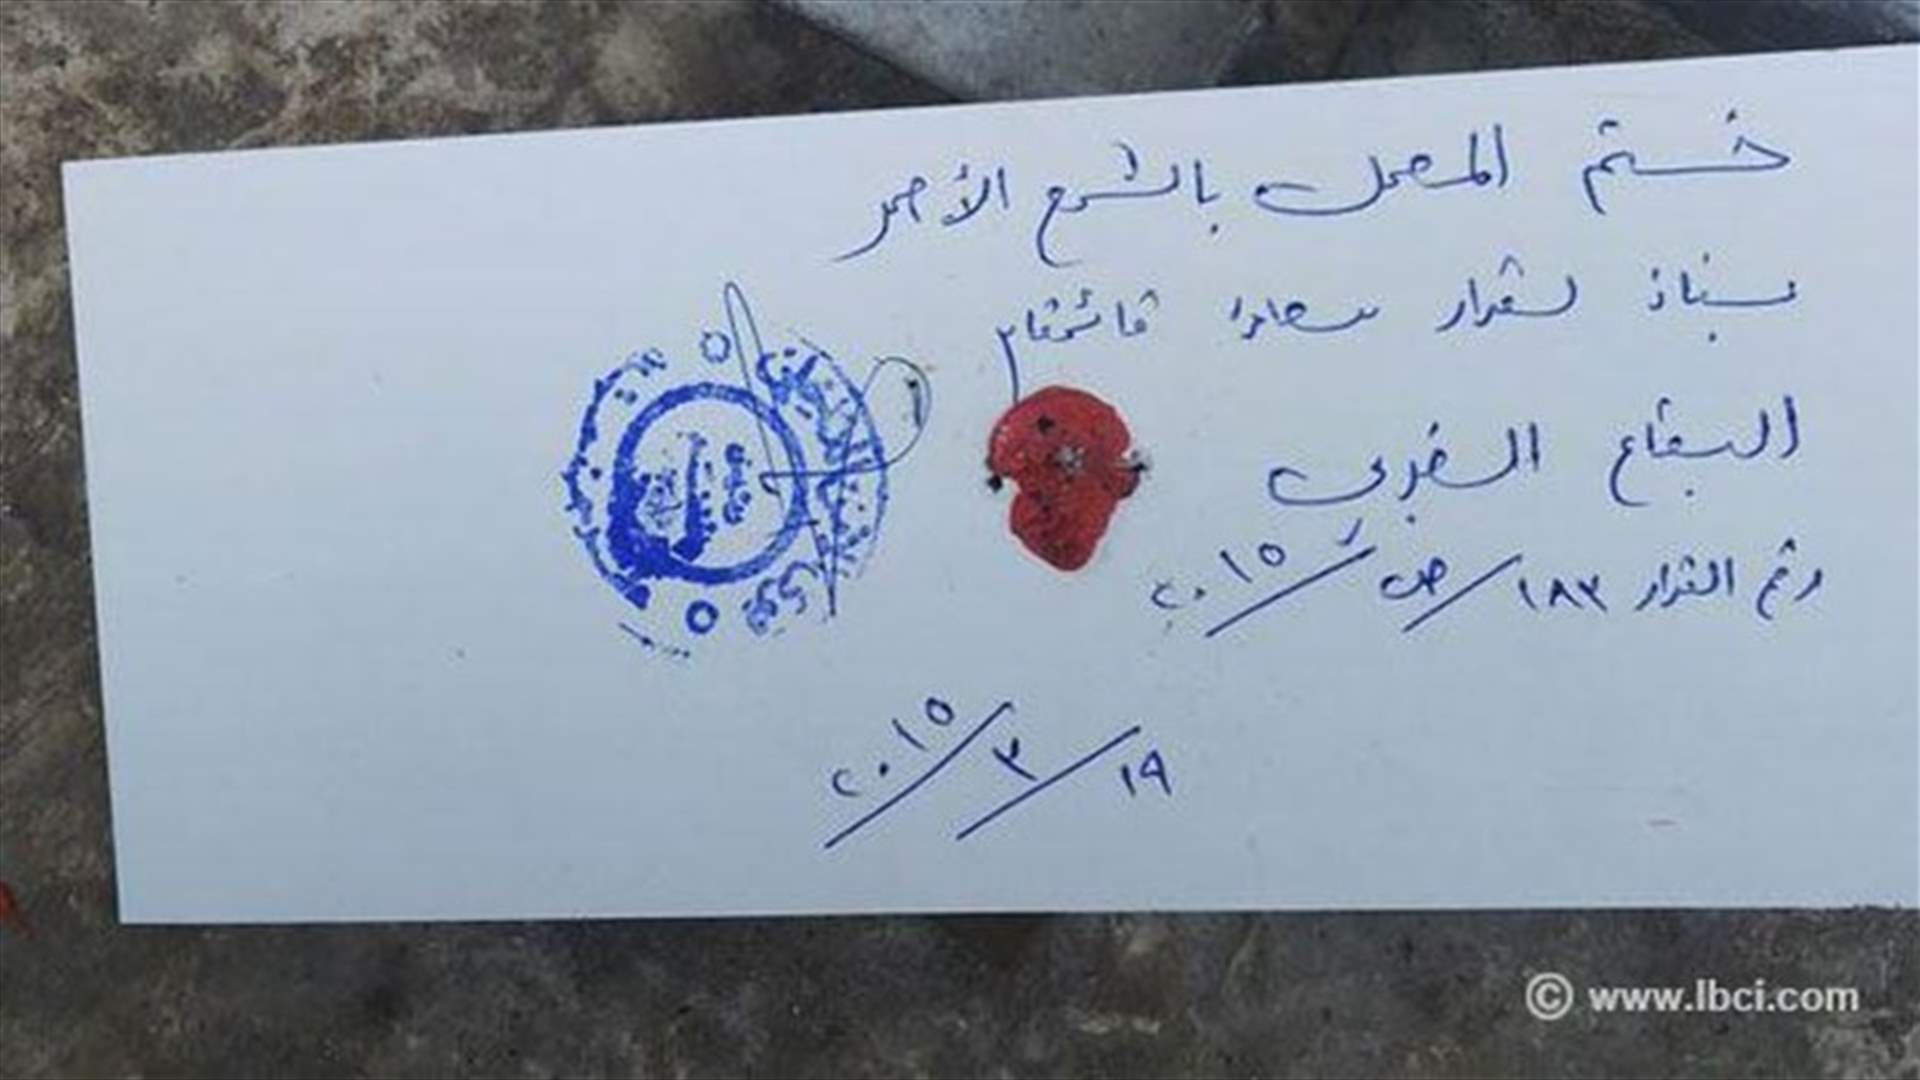 ختم المعمل بالشمع الأحمر
بناءً لقرار سعادة قائمقام
البقاع الغربي
رقم القرار ١٨٣/ص/٢٠١٥
١٩/٣/٢٠١٥
© www.lbci.com